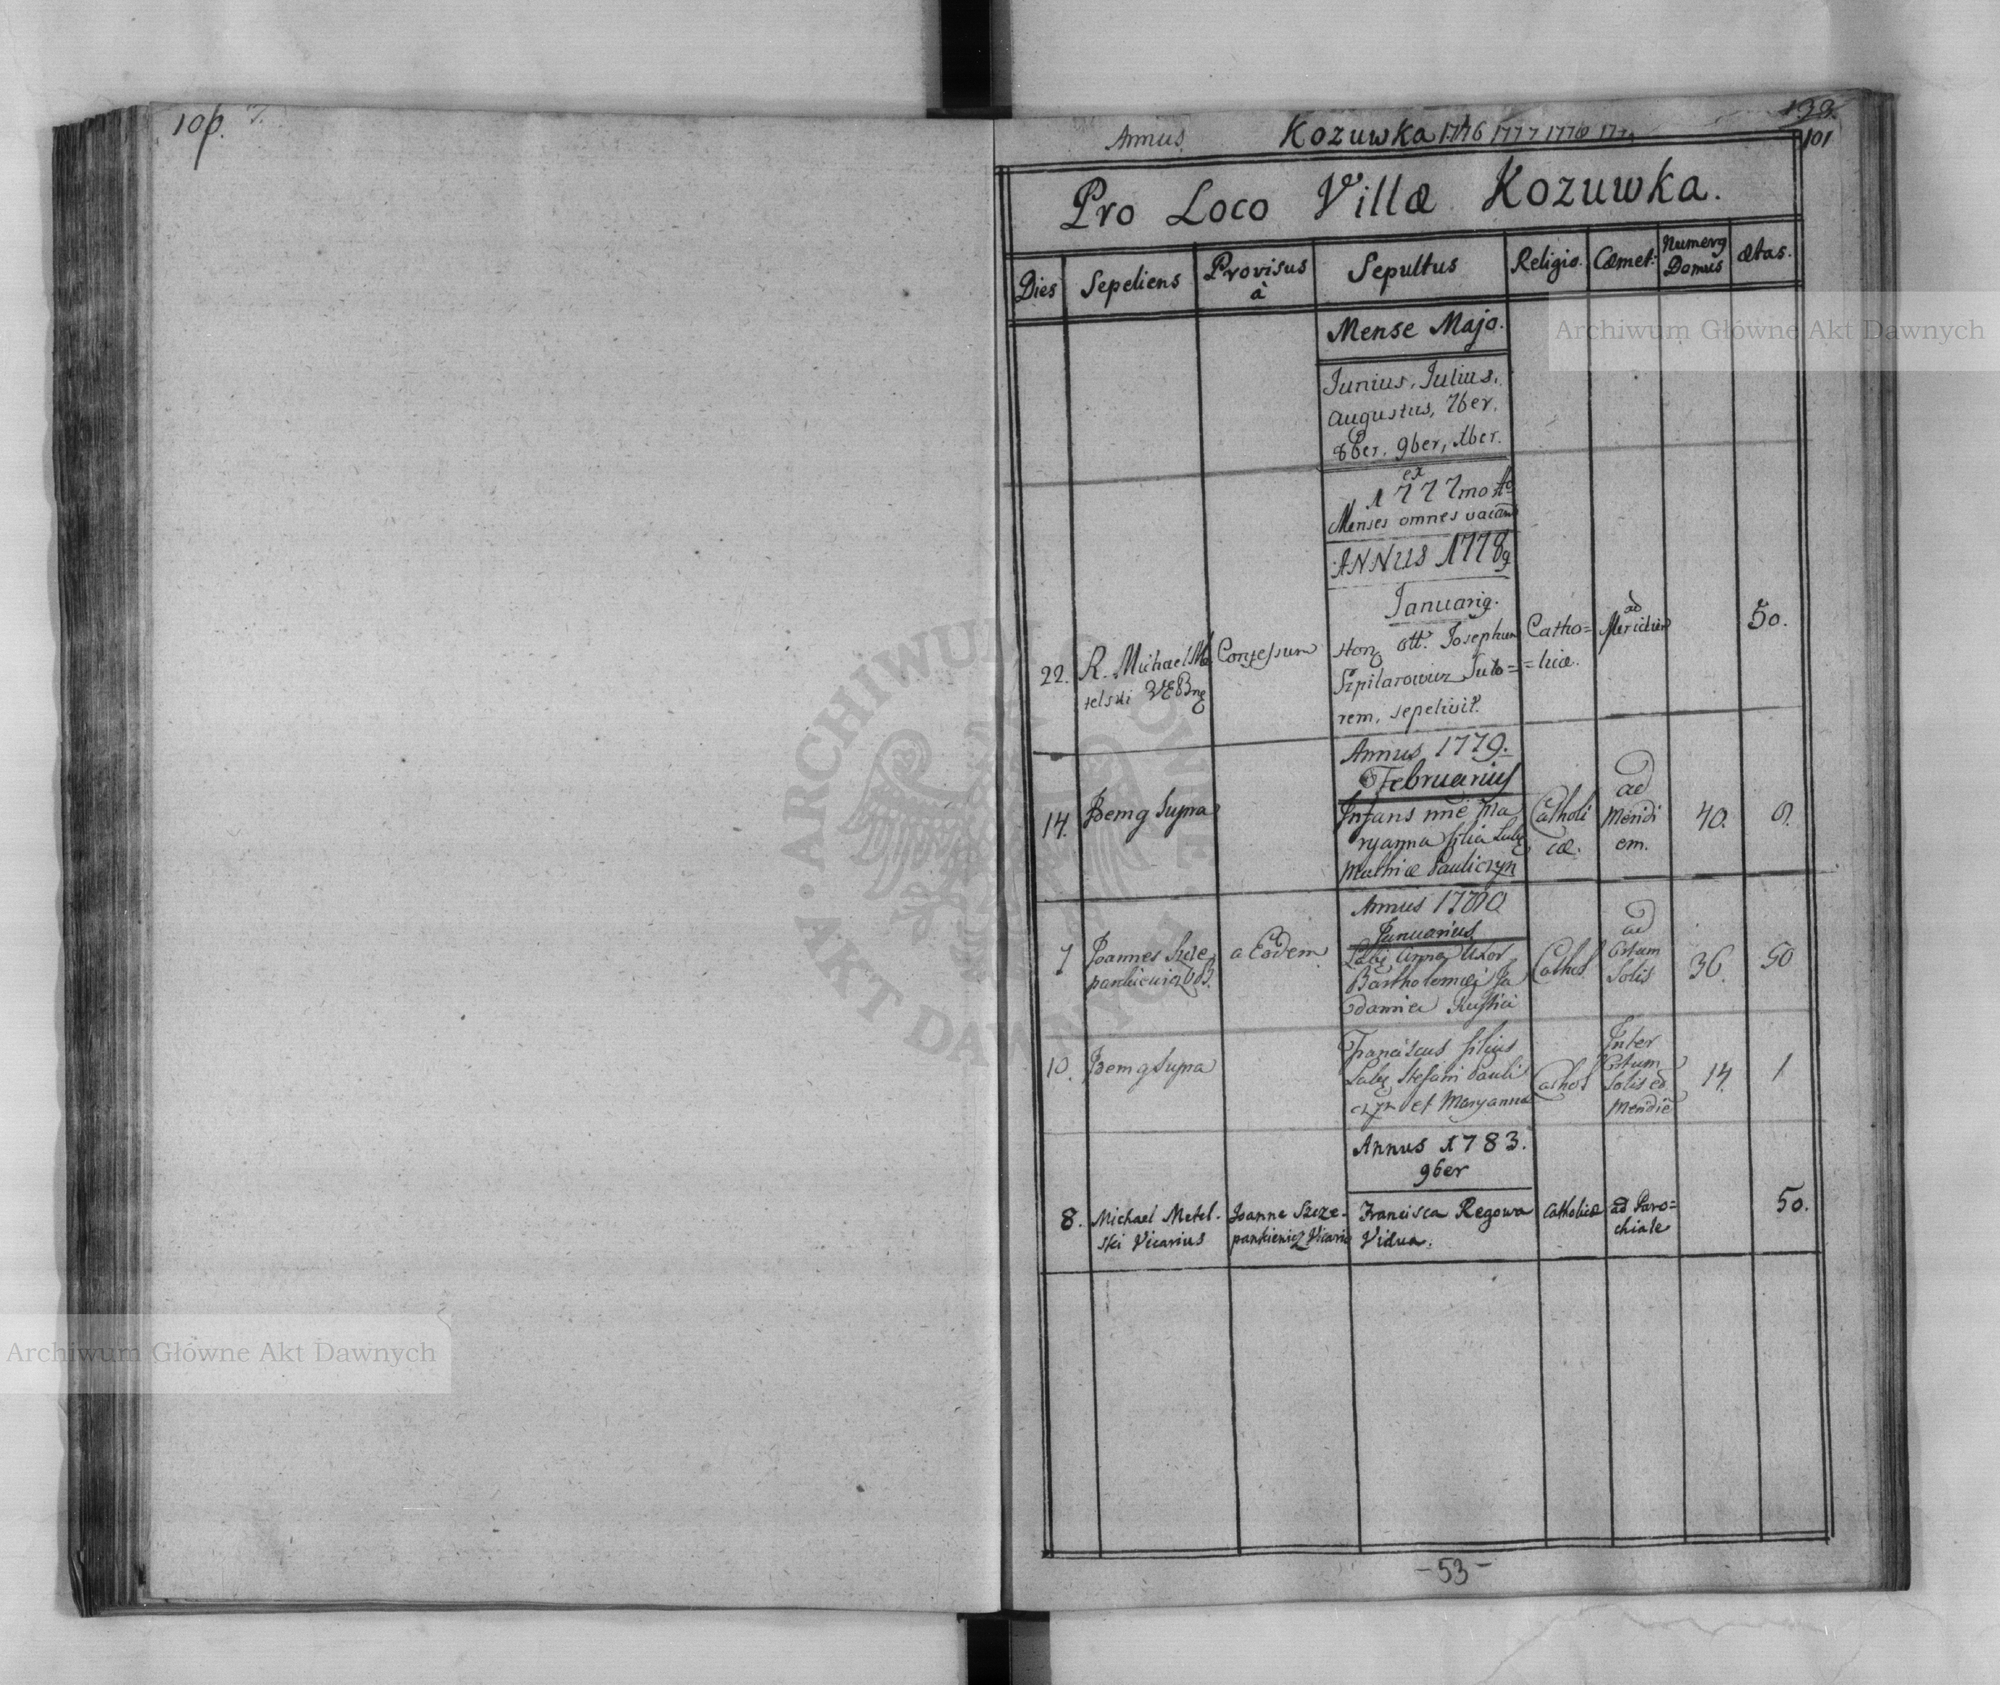 100. 7.
Annus. Kozuwka 1776 1777 1778 1779
101
Pro Loco Villæ Kozuwka.
Dies Sepeliens Provisus à Sepultus Religio. Cæmet: Numerg Domus ætas.
Mense Majo.
Junius, Julius,
Augustus, 7ber,
8ber, 9ber, Xber.
ex
1777mo Ao
Menses omnes vacant
ANNUS 1778
Januarig.
22. R. Michael Me
telski
Confessum
Hong ott. Josephum
Szpilarowicz Suto=
rem, sepelivit.
Catho=
=licæ.
ad
Meridiem
50.
Annus 1779.
Februarius
14. Idemg Supra
Infans nne Ma
ryanna filia Labg
Mathiæ Pauliczyn
Catholi
cæ.
ad
Meridi
em.
40.
Annus 1780
Januarius
7 Joannes Szcze
pankiewicz
a Eodem
Labg Anna Uxor
Bartholomæi
Rustici
Cathol
ad
Ortum
Solis
36.
50
10. Idemg Supra
Franciscus filius
Labg Stefani Pauli
czyn et Maryanna
Cathol
Inter
Ortum
Solis et
Meridie
14.
1
Annus 1783.
9ber
8. Michael Metel-
ski Vicarius
Joanne Szcze-
pankiewicz Vicario
Francisca Regowa
Vidua.
Catholicæ
ad Paro=
chiale
50.
-53-
Archiwum Główne Akt Dawnych
Archiwum Główne Akt Dawnych
ARCHIWUM GŁÓWNE AKT DAWNYCH